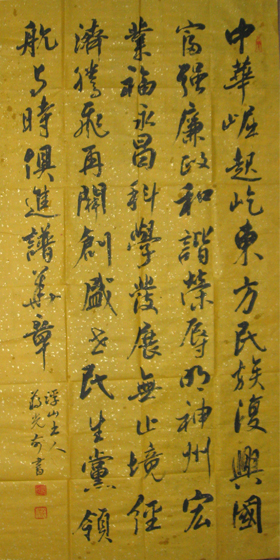 中華崛起屹東方民族復興國
富强廉政和諧榮辱明神州宏
業福永昌科學發展無止境經
濟騰飛再開創盛世民生黨領
航与時俱進譜華章
浮山土人
光奇書